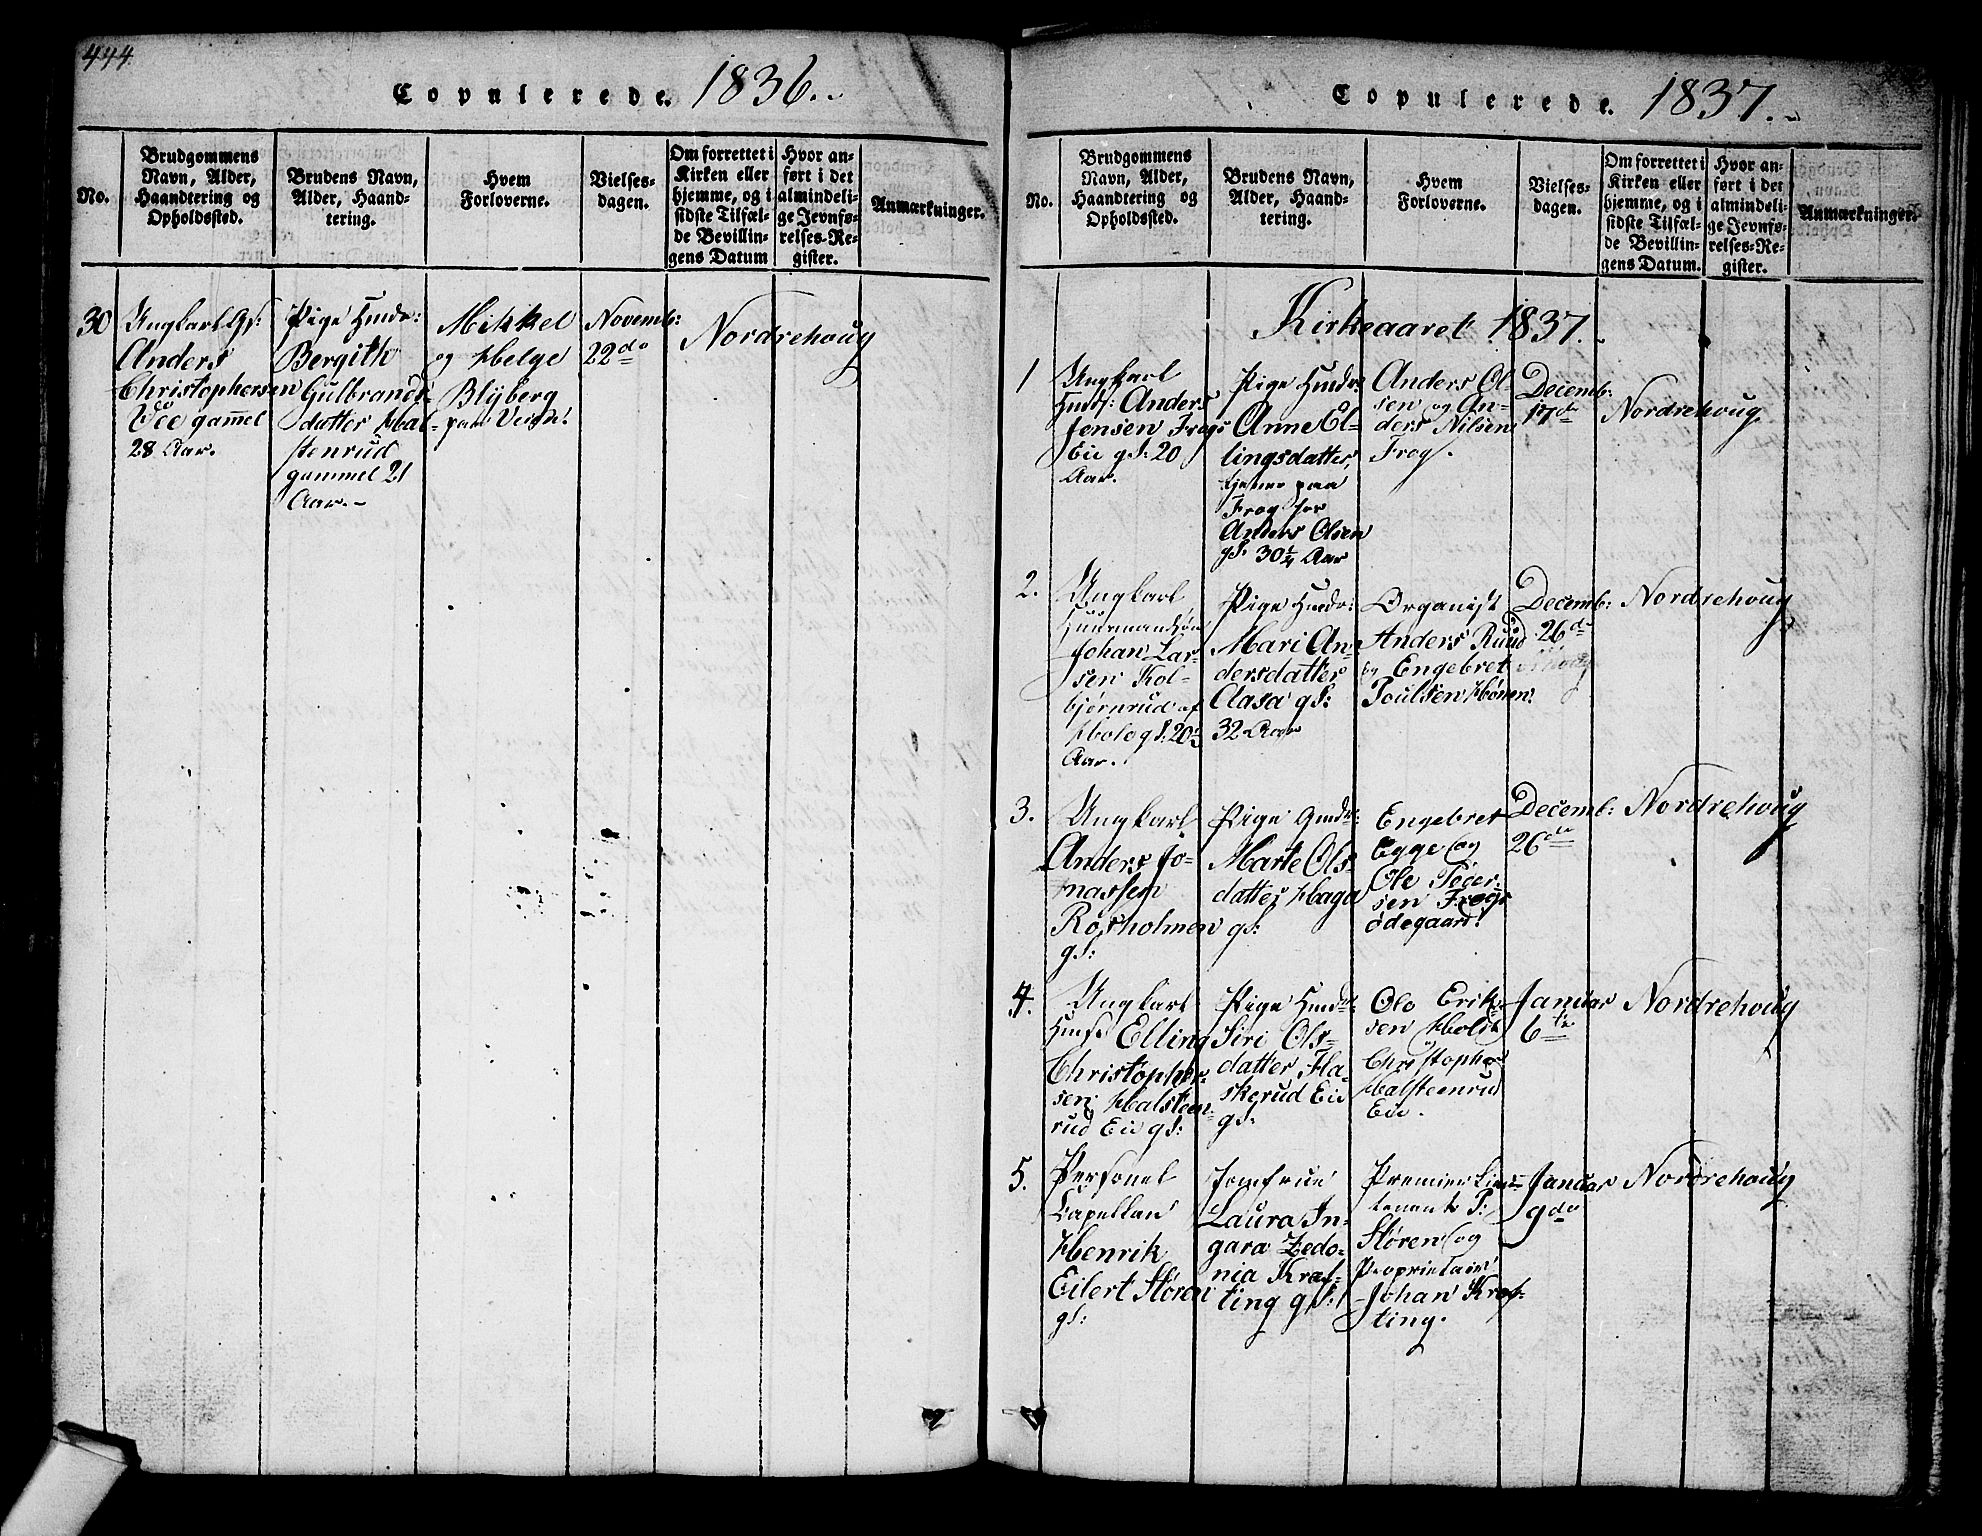 444
Copulerede. 1836.
No.
Brudgommens
Navn, Alder,
Haandtering og
Opholdssted.
Brudens Navn,
Alder, Haand-
tering.
Hvem
Forloverne.
Vielses-
dagen.
Om forrettet i
Kirken eller
hjemme, og i
sidste Tilfæl-
de Bevillin-
gens Datum
Hvor an-
ført i det
almindeli-
ge Jevnfø-
relses-Re-
gister.
Anmærkninger.
30
Ungkarl Gs:
Anders
Christophersen
Vee gammel
28 Aar.
Pige Huusdr:
Bergith
Gulbrands-
datter Hal-
stenrud
gammel 21
Aar.-
Mikkel
og Helge
Blyberg
paa
Novemb:
22de
Nordrehoug
Copulerede. 1837.
No.
Brudgommens
Navn, Alder,
Haandtering og
Opholdssted.
Brudens Navn,
Alder, Haand-
tering.
Hvem
Forloverne.
Vielses-
dagen.
Om forrettet i
Kirken eller
hjemme, og i
sidste Tilfæl-
de Bevillin-
gens Datum.
Hvor an-
ført i det
almindeli-
ge Jevnfø-
relses-Re-
gister.
Anmærkninger.
Kirkeaaret 1837.
1
Ungkarl
Huusf: Anders
Jensen Frogs
Eie gl: 20
Aar.
Pige Huusdr
Anne El-
lingsdatter,
tjener paa
Frog hos
Anders Olsen
gl: 30 1/4 Aar
Anders Ol
sen og An-
ders Nilsen
Frog.
Decemb:
17de
Nordrehoug
2.
Ungkarl
Huusmandssøn
Johan Lar-
sen Kol-
bjørnrud af
Hole gl: 20 1/2
Aar.
Pige Huusdr:
Mari An-
dersdatter
Aasa gl:
32 Aar
Organist
Anders Ruud
og Engebret
Poulsen Hønen
Decemb:
26de
Nordrehoug
3.
Ungkarl
Anders Jo-
nassen
Rosholmen
gl:
Pige Gmdr:
Marte Ols-
datter Haga
gl:
Engebret
Egge og
Ole Peder-
sen Frogs
ødegaard
Decemb:
26de
Nordrehoug
4.
Ungkarl
Huusf Elling
Christopher-
sen Halsteen-
rud Eie gl:
Pige Huusdr:
Siri Ols-
datter Fla-
skerud Eie
gl:
Ole Erik-
sen Holst
Christopher
Halsteenrud
Eie.
Januar
6te
Nordrehoug
5.
Personel
Capellan
Henrik
Eilert Støren
gl:
Jomfrue
Laura In-
gara Zedo-
nia Kref-
ting gl:
Premier Lieu-
tenant P:
Støren og
Proprietair
Johan Kref-
ting.
Januar
9de
Nordrehoug